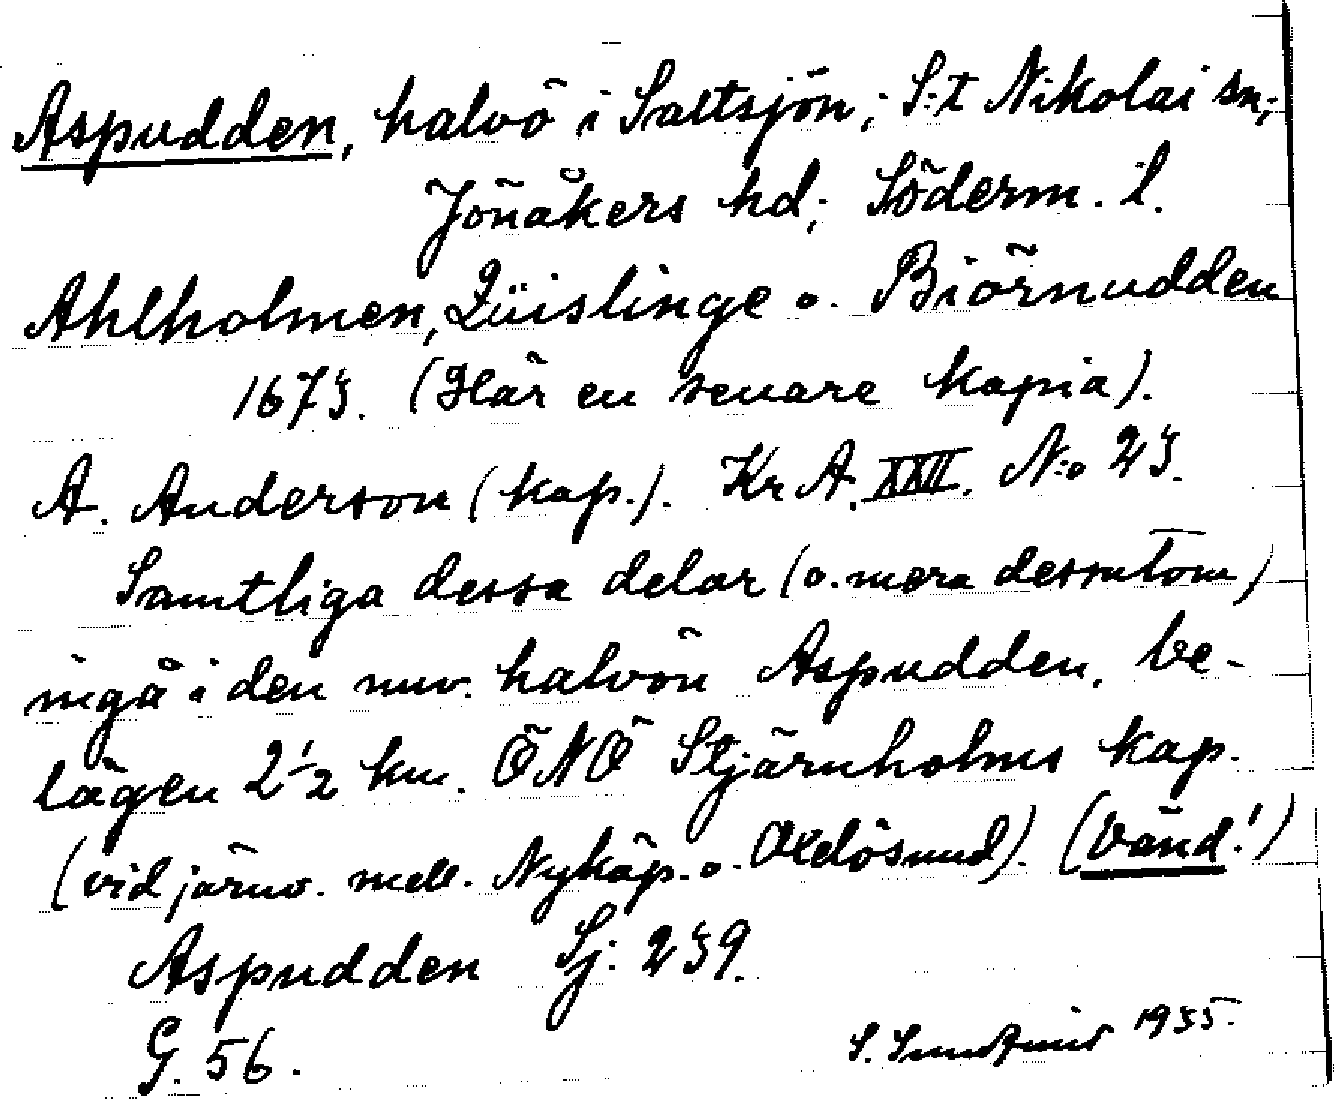 Aspudden, halvö i Saltsjön; S:t Nikolai sn;
Jönåkers hd; Söderm. l.
Ahlholmen, Züislinge o. Biörnudden
1673. (Här en senare kopia).
A. Anderson (kap.). Kr A. XXII. N:o 23.
Samtliga dessa delar (o. mera dessutom)
ingå i den nuv. halvön Aspudden, be-
lägen 2 1/2 km. ÖNÖ Stjärnholms kap.
(vid järnv. mell. Nyköp. o. Oxelösund). (Vänd!)
Aspudden Sj: 239.
G. 56.
S. 1935.